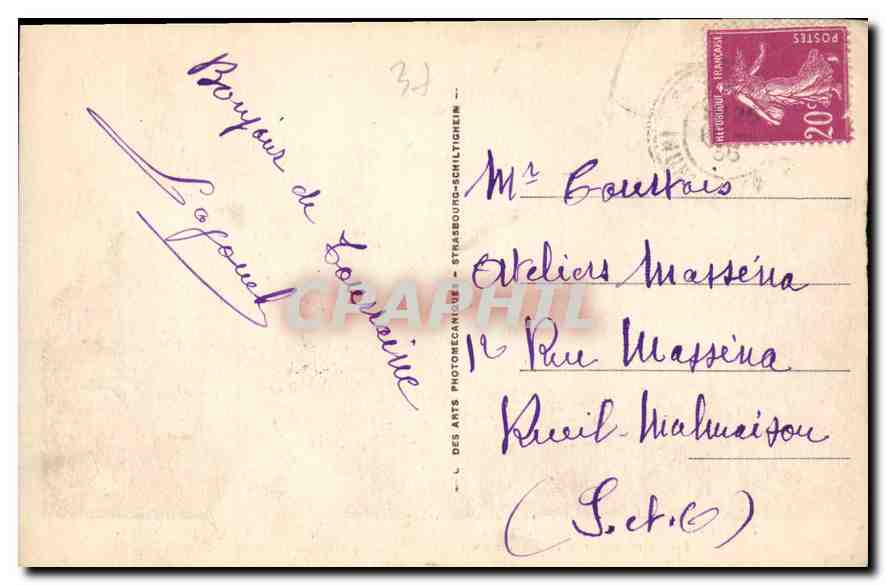 Bonjour de Touraine
37
L DES ARTS PHOTOMÉCANIQUES - STRASBOURG-SCHILTIGHEIM
CPARPHIL
RÉPUBLIQUE FRANÇAISE
POSTES
20c
Mr
Ateliers Masséna
12 Rue Masséna
Rueil-Malmaison
(S. et. O)